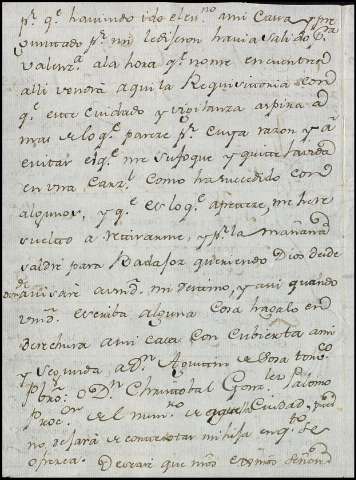 pr. qe. haviendo ido el esno. a mi Casa y pre
guntado pr. mi le dijeron havia salido
Valenza. a la hora qe. no me encuentren
alli vendrá aqui la Requisitoria con
qe. este cuidado y vigilanza aspira a
mas de lo qe. parece pr. cuya razon y a
evitar el qe. me sufoque y quite la vida
en una Carzl. como ha sucedido con
algunos, y qe. es lo qe. apetece, me he re
suelto a retirarme, y pr. la mañana
saldré para Badajoz queriendo Dios desde
donde avisaré a vmd. mi destino, y asi quando
vmd. escriba alguna cosa hagalo en
derechura a mi casa con cubierta a mi
y segunda, a Dn. Agustin de Sosa
Pbro. o Dn. Christobal Gonz. Palomo
Procor. del numro. de Ciudad, pues
no dejará de contextar mi hija en qto. se
ofrezca. Decear que mas